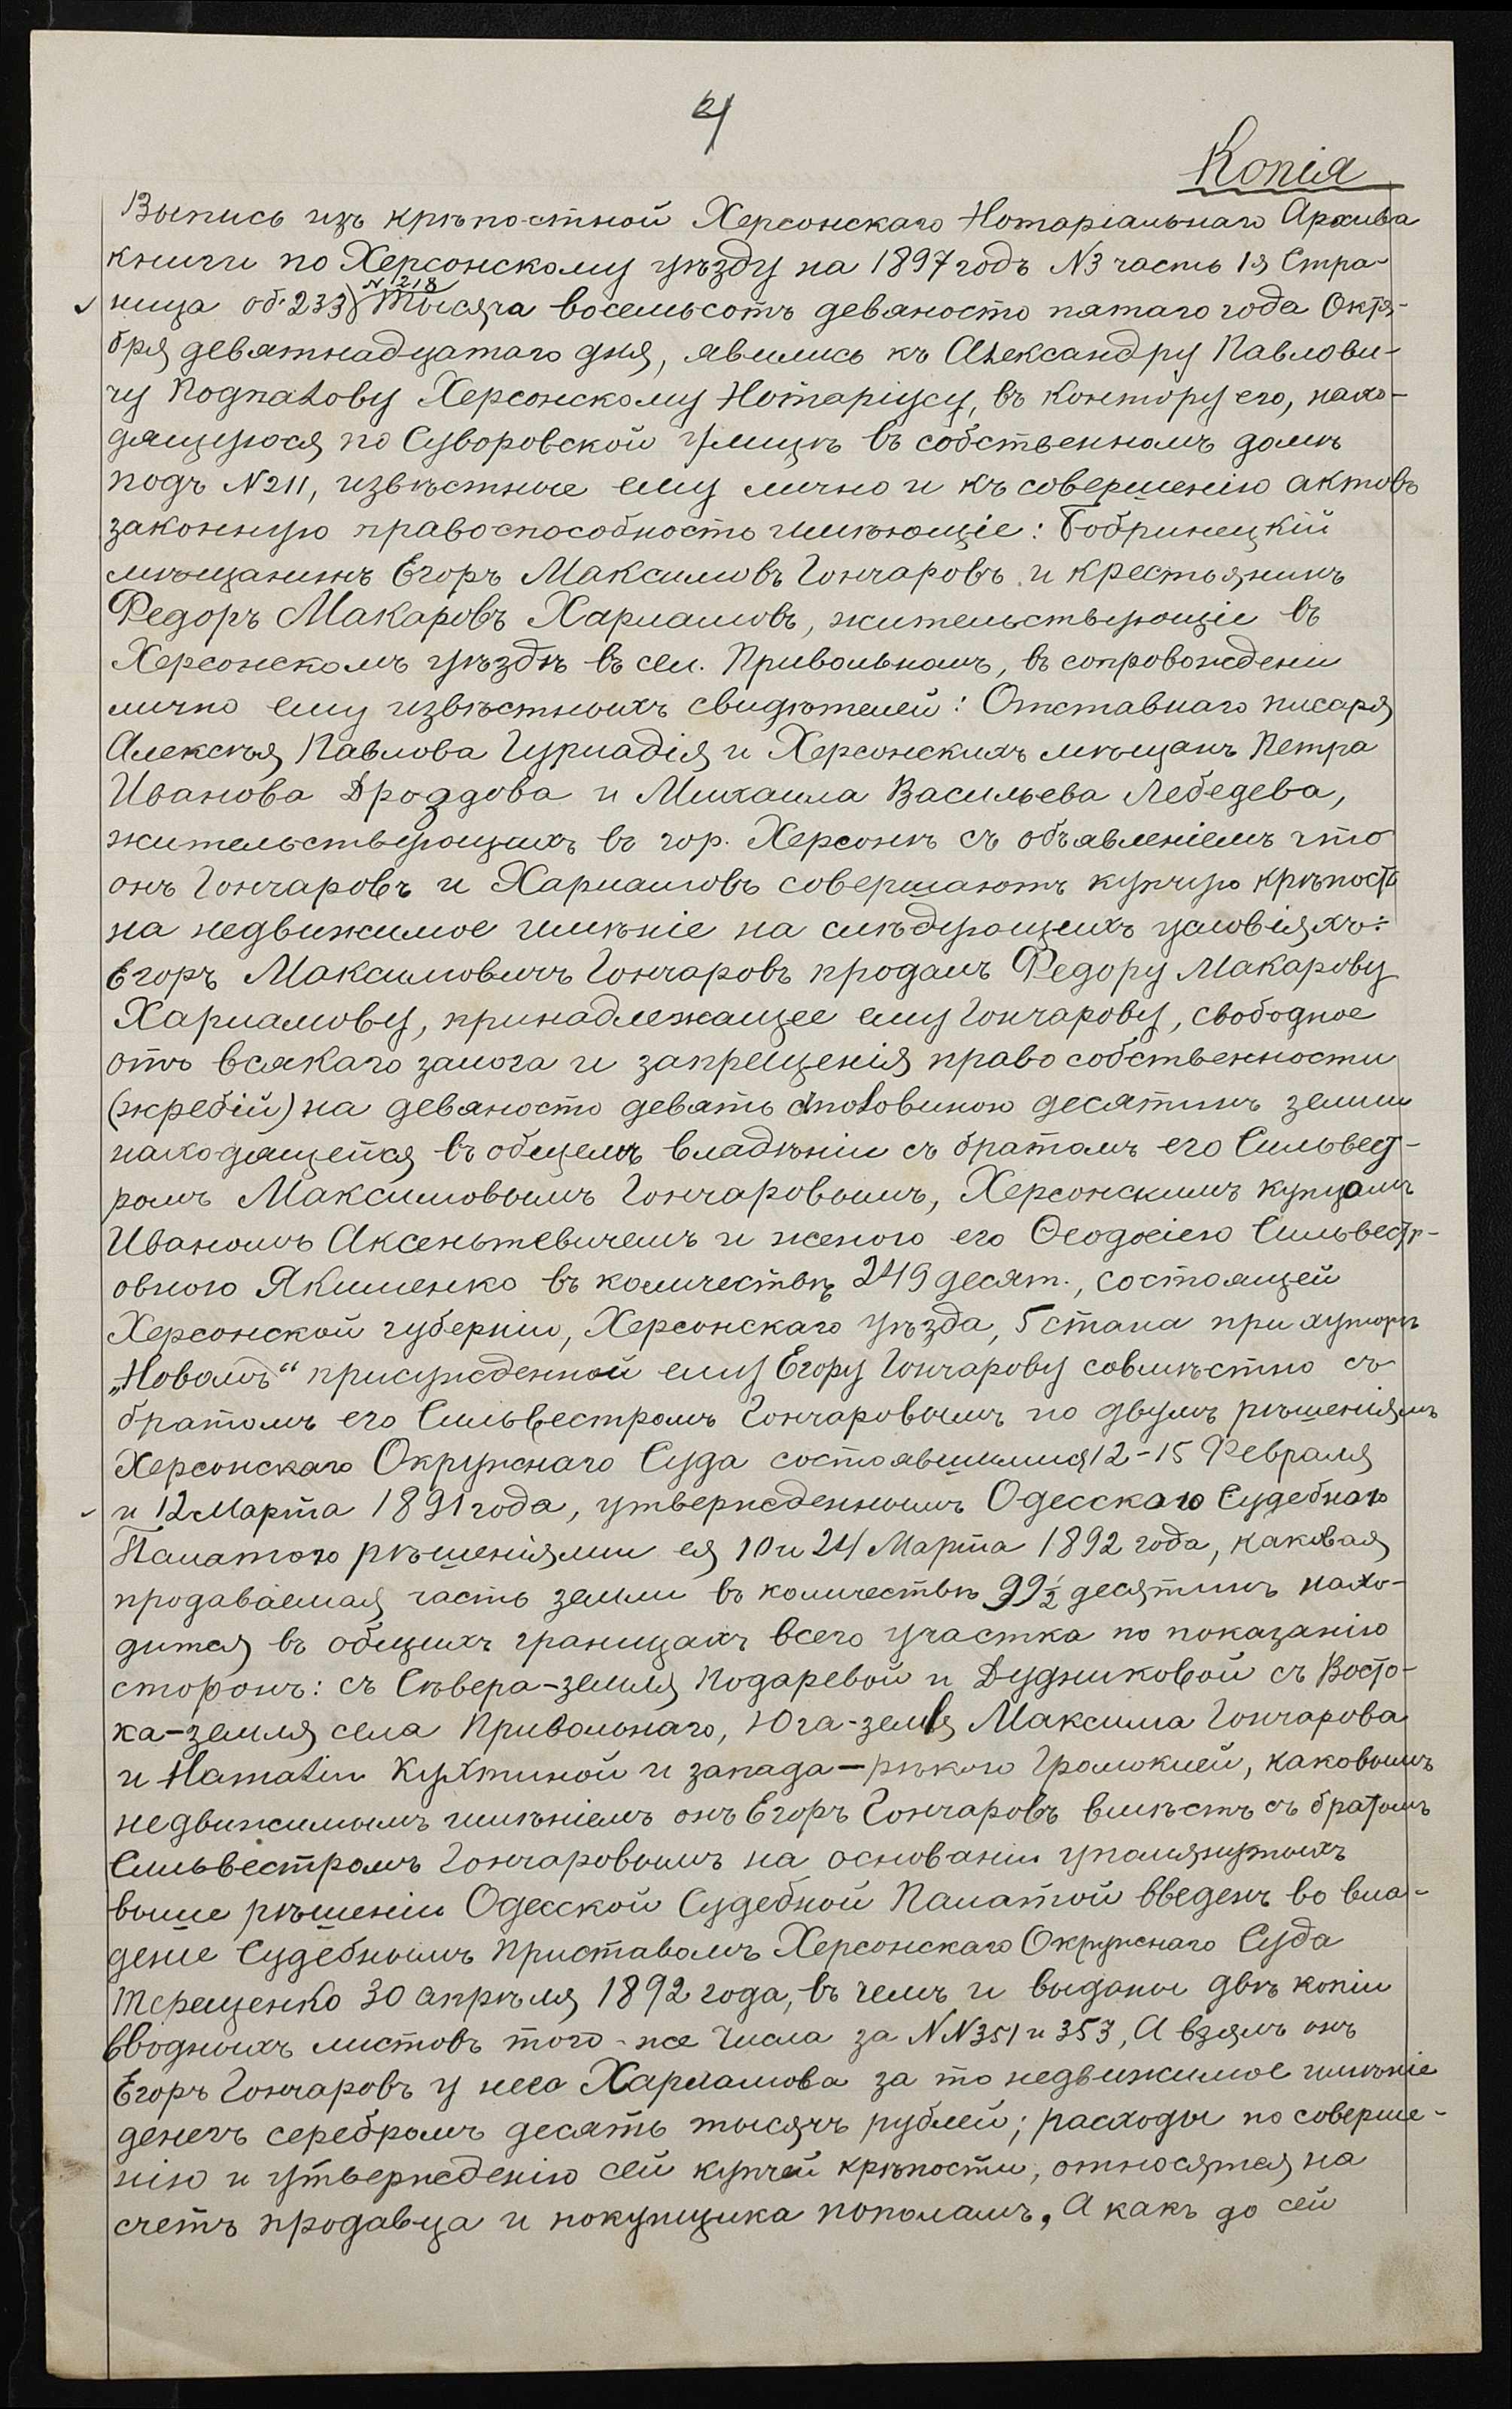 4
Копія
Выпись изъ крѣпостной Херсонскаго Нотаріальнаго Архива
книги по Херсонскому уѣзду на 1897 годъ №3 часть 1я Стра-
№ 218
ница об. 233) Тысяча восемьсотъ девяносто пятаго года Октя-
бря девятнадцатаго дня, явились къ Александру Павлови-
чу Подпалову Херсонскому Нотаріусу, въ контору его, нахо-
дящуюся по Суворовской улицѣ въ собственномъ домѣ
подъ №211, извѣстные ему лично и къ совершенію актовъ
законную правоспособность имѣющіе: Бобринецкій
мѣщанинъ Егоръ Максимовъ Гончаровъ и крестьянинъ
Федоръ Макаровъ Харламовъ, жительствующіе въ
Херсонскомъ уѣздѣ въ сел. Привольномъ, въ сопровождени
лично ему извѣстныхъ свидѣтелей: Отставнаго писаря
Алексѣя Павлова Гурладія и Херсонскихъ мѣщанъ Петра
Иванова Дроздова и Михаила Васильева Лебедева,
жительствующихъ въ гор. Херсонѣ съ объявленіемъ что
онъ Гончаровъ и Харламовъ совершаютъ купчую крѣпость
на недвижимое имѣніе на слѣдующихъ условіяхъ:
Егоръ Максимовичъ Гончаровъ продалъ Федору Макарову
Харламову, принадлежащее ему Гончарову, свободное
отъ всякаго залога и запрещенія право собственности
(жребій) на девяносто девять съ половиною десятинъ земли
находящейся въ общемъ владѣніи съ братомъ его Сильвест-
ромъ Максимовымъ Гончаровымъ, Херсонскимъ купцомъ
Иваномъ Аксентьевичемъ и женою его Ѳеодосіею Сильвестр-
овною Якименко въ количествѣ 249 десят., состоящей
Херсонской губерніи, Херсонскаго уѣзда, 5 стана при хуторѣ
„Новомъ“ присужденной ему Егору Гончарову совмѣстно съ
братомъ его Сильвестромъ Гончаровымъ по двумъ рѣшеніямъ
Херсонскаго Окружнаго Суда состоявшимися 12-15 Февраля
и 12 Марта 1891 года, утвержденнымъ Одесскаю Судебною
Палатою рѣшеніями ея 10 и 24 Марта 1892 года, каковая
продаваемая часть земли въ количествѣ 99½ десятинъ нахо-
дится въ общихъ границахъ всего участка по показанію
сторонъ: съ Сѣвера-земля Подаревой и Дудниковой съ Восто-
ка-земля села Привольнаго, Юга-земля Максима Гончарова
и Наталіи Кухтиной и запада-рѣкою Громоклей, каковымъ
недвижимымъ имѣніемъ онъ Егоръ Гончаровъ вмѣстѣ съ братомъ
Сильвестромъ Гончаровымъ на основаніи упомянутыхъ
выше рѣшеніи Одесской Судебной Палатой введенъ во вла-
деніе Судебнымъ Приставомъ Херсонскаго Окружнаго Суда
Терещенко 30 апрѣля 1892 года, въ чемъ и выданы двѣ копіи
вводныхъ листовъ того-же числа за №№351 и 353, А взялъ онъ
Егоръ Гончаровъ у него Харламова за то недвижимое имѣніе
денегъ серебромъ десять тысячъ рублей; расходы по соверше-
нію и утвержденію сей купчей крѣпости, относятся на
счетъ продавца и покупщика пополамъ, А какъ до сей